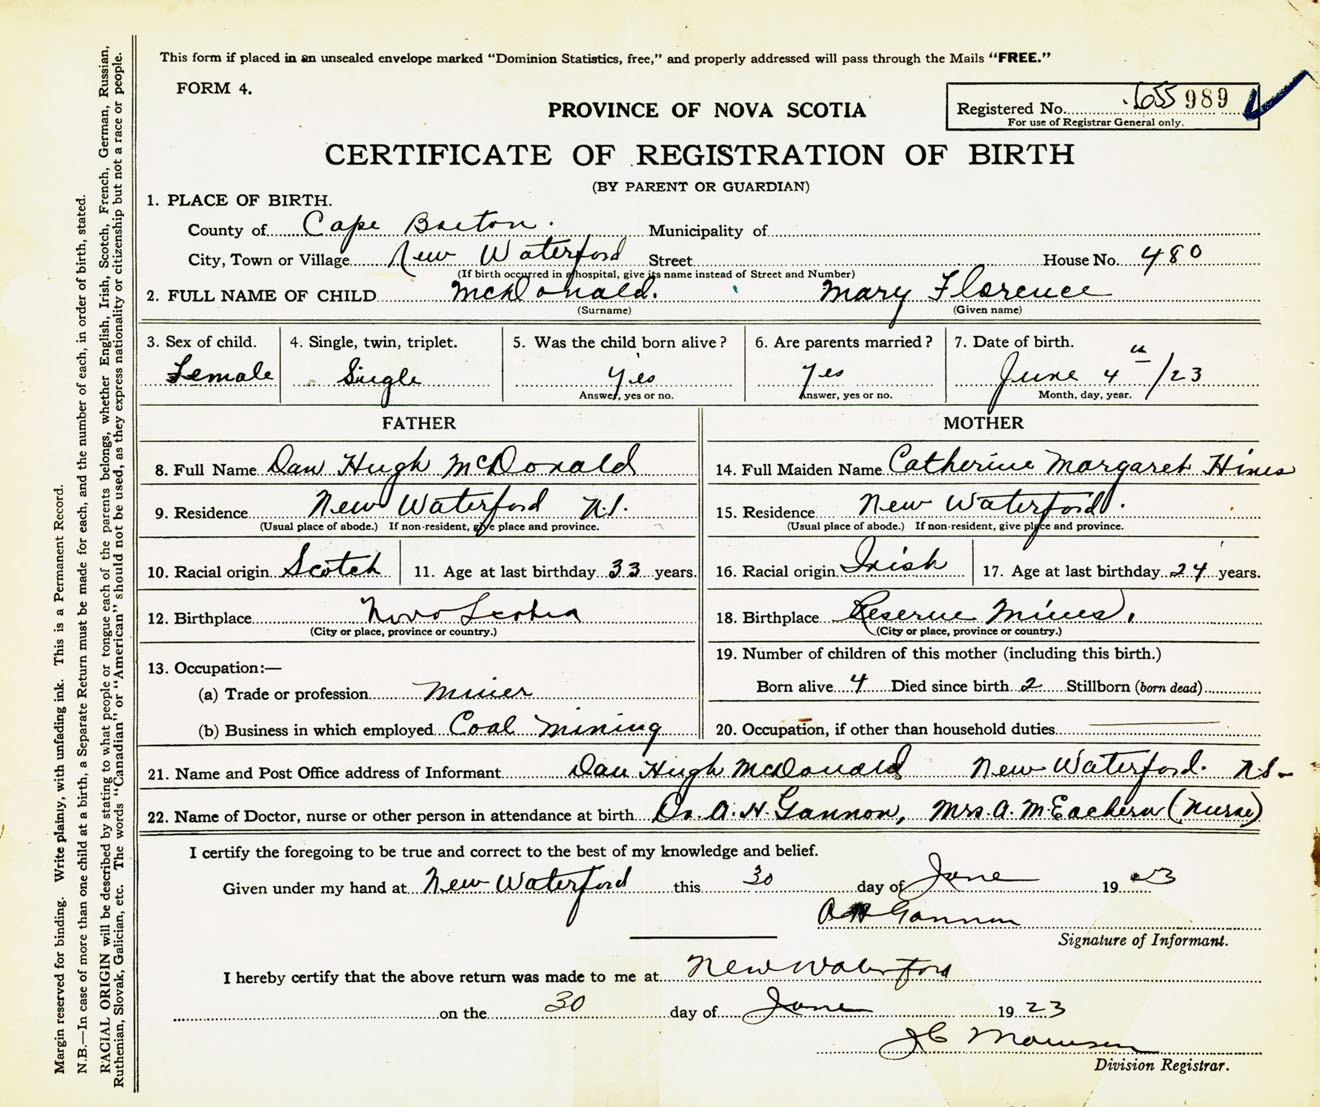 This form if placed in an unsealed envelope marked “Dominion Statistics, free,” and properly addressed will pass through the Mails “FREE.”
FORM 4.
PROVINCE OF NOVA SCOTIA
Registered No. 655 989
For use of Registrar General only.
CERTIFICATE OF REGISTRATION OF BIRTH
(BY PARENT OR GUARDIAN)
1. PLACE OF BIRTH.
County of Cape Breton. Municipality of
City, Town or Village New Waterford Street House No. 480
(If birth occurred in a hospital, give its name instead of Street and Number)
2. FULL NAME OF CHILD McDonald. Mary Florence
(Surname) (Given name)
3. Sex of child. 4. Single, twin, triplet. 5. Was the child born alive? 6. Are parents married? 7. Date of birth.
Female Single Yes Yes June 4th/23
Answer, yes or no. Answer, yes or no. Month, day, year.
FATHER MOTHER
8. Full Name Dan Hugh McDonald 14. Full Maiden Name Catherine Margaret Hines
9. Residence New Waterford N.S. 15. Residence New Waterford.
(Usual place of abode.) If non-resident, give place and province. (Usual place of abode.) If non-resident, give place and province.
10. Racial origin Scotch 11. Age at last birthday 33 years. 16. Racial origin Irish 17. Age at last birthday 24 years.
12. Birthplace Nova Scotia 18. Birthplace Reserve Mines.
(City or place, province or country.) (City or place, province or country.)
13. Occupation:— 19. Number of children of this mother (including this birth.)
(a) Trade or profession Miner Born alive 4 Died since birth 2 Stillborn (born dead)
(b) Business in which employed Coal Mining 20. Occupation, if other than household duties
21. Name and Post Office address of Informant Dan Hugh McDonald New Waterford. N.S.
22. Name of Doctor, nurse or other person in attendance at birth Dr. A. H. Gannon, Mrs. A. McEachern (Nurse)
I certify the foregoing to be true and correct to the best of my knowledge and belief.
Given under my hand at New Waterford this 30 day of June 1923
A H Gannon
Signature of Informant.
I hereby certify that the above return was made to me at New Waterford
on the 30 day of June 1923
J C
Division Registrar.
Margin reserved for binding. Write plainly, with unfading ink. This is a Permanent Record.
N.B.—In case of more than one child at a birth, a Separate Return must be made for each, and the number of each, in order of birth, stated.
RACIAL ORIGIN will be described by stating to what people or tongue each of the parents belongs, whether English, Irish, Scotch, French, German, Russian,
Ruthenian, Slovak, Galician, etc. The words “Canadian” or “American” should not be used, as they express nationality or citizenship but not a race or people.